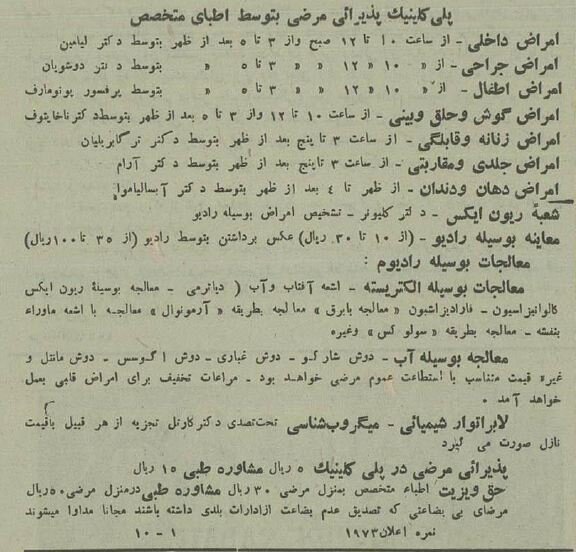 پلی کلینیك پذیرائی مرضی بتوسط اطبای متخصص
امراض داخلی - از ساعت ۱۰ تا ۱۲ صبح واز ۳ تا ۵ بعد از ظهر بتوسط دکتر لیامین
امراض جراحی - از « ۱۰ « ۱۲ « « ۳ تا ۵ « بتوسط دکتر دوشویان
امراض اطفال - از « ۱۰ « ۱۲ « « ۳ تا ۵ « بتوسط پرفسور پونومارف
امراض گوش وحلق وبینی - از ساعت ۱۰ تا ۱۲ واز ۳ تا ۵ بعد از ظهر بتوسط دکتر ناخایتوف
امراض زنانه وقابلگی - از ساعت ۳ تا پنج بعد از ظهر بتوسط دکتر گابریلیان
امراض جلدی ومقاربتی - از ساعت ۳ تاپنج بعد از ظهر بتوسط دکتر آرام
امراض دهان ودندان - از ظهر تا ٤ بعد از ظهر بتوسط دکتر آبسالیاموا
شعبهٔ ریون ایکس - دکتر کلیونر - تشخیص امراض بوسیله رادیو
معاینه بوسیله رادیو - (از ۱۰ تا ۳۰ ریال) عکس برداشتن بتوسط رادیو (از ۳۵ تا ۱۰۰ریال)
معالجات بوسیله رادیوم :
معالجات بوسیله الکتریسته - اشعه آفتاب وآب ( دیاترمی - معالجه بوسیلهٔ ریون ایکس
کالوانیزاسیون - فارادیزاسیون «معالجه بابرق» معالجه بطریقه «آرمونوال» معالجه با اشعه ماوراء
بنفشه - معالجه بطریقه «سولو کس» وغیره
معالجه بوسیله آب - دوش شارکو - دوش غباری - دوش اگوسس - دوش مانتل و
غیره قیمت متناسب با استطاعت عموم مرضی خواهد بود - مراعات تخفیف برای امراض قلبی بعمل
خواهد آمد .
لابراتوار شیمیائی - میگروب شناسی تحت تصدی دکتر کارتل تجزیه از هر قبیل باقیمت
نازل صورت می گیرد
پذیرائی مرضی در پلی کلینیك ۵ ریال مشاوره طبی ۱۵ ریال
حق ویزیت اطباء متخصص بمنزل مرضی ۳۰ ریال مشاوره طبی درمنزل مرضی ۵۰ریال
مرضای بی بضاعتی که تصدیق عدم بضاعت ازادارات بلدی داشته باشند مجانا مداوا میشوند
نمره اعلان ۱۹۷۳ ۱ - ۱۰